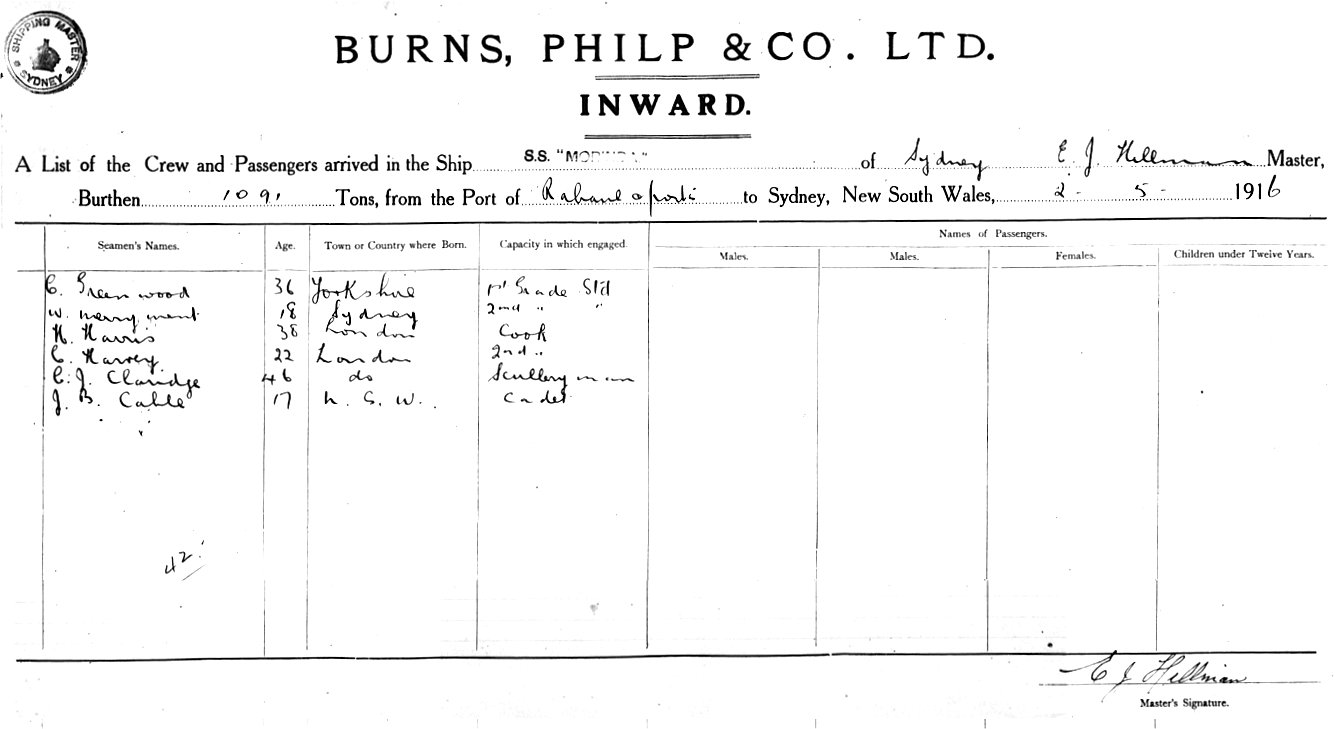 SHIPPING MASTER
SYDNEY
BURNS, PHILP & CO. LTD.
INWARD.
A List of the Crew and Passengers arrived in the Ship S.S. "MORINDA" of Sydney E. J. Hillman Master,
Burthen 1091 Tons, from the Port of Rabaul & ports to Sydney, New South Wales, 2 - 5 - 1916
Names of Passengers.
Seamen's Names. Age. Town or Country where Born. Capacity in which engaged. Males. Males. Females. Children under Twelve Years.
C. Greenwood 36 Yorkshire 1st Grade Std
W. Merryment 18 Sydney 2nd " "
H. Harris 38 London Cook
C. Harvey 22 London 2nd "
C. J. Claridge 46 do Scullery man
J. B. Cable 17 N. S. W. Cadet
42
E J Hillman
Master's Signature.